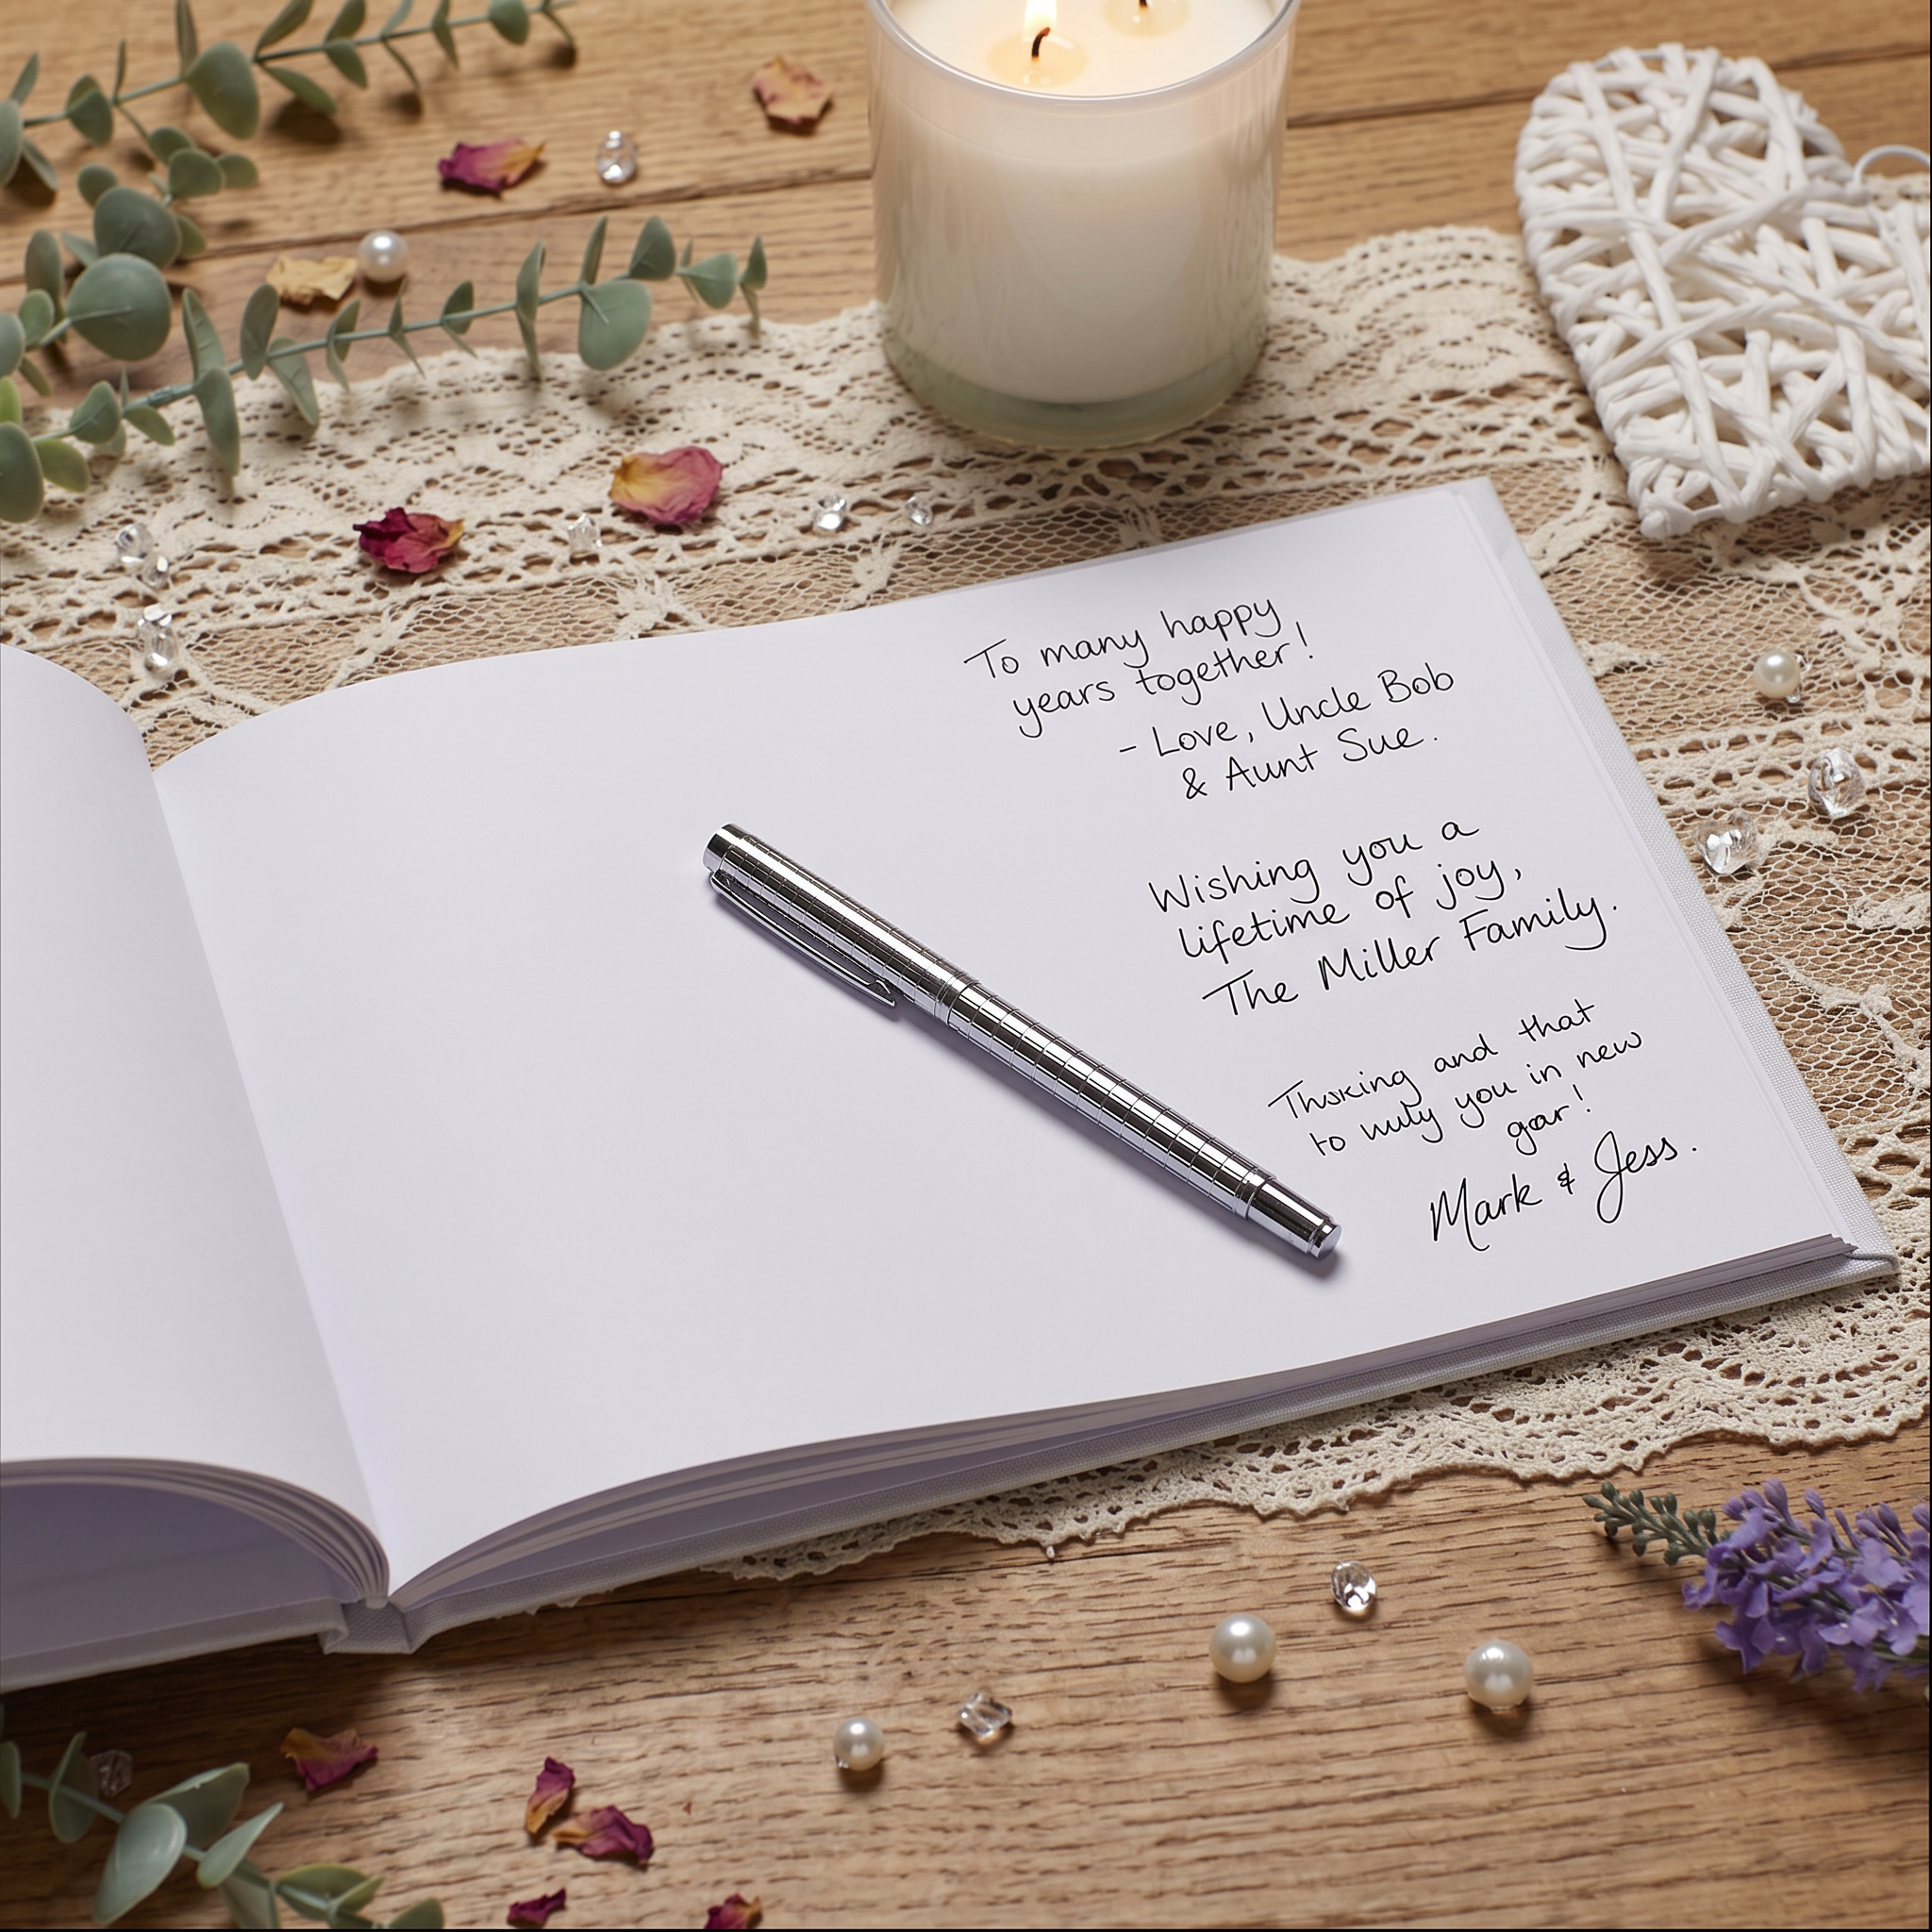 To many happy
years together!
- Love, Uncle Bob
& Aunt Sue.
Wishing you a
lifetime of joy,
The Miller Family.
and that
to you in new
Mark & Jess.